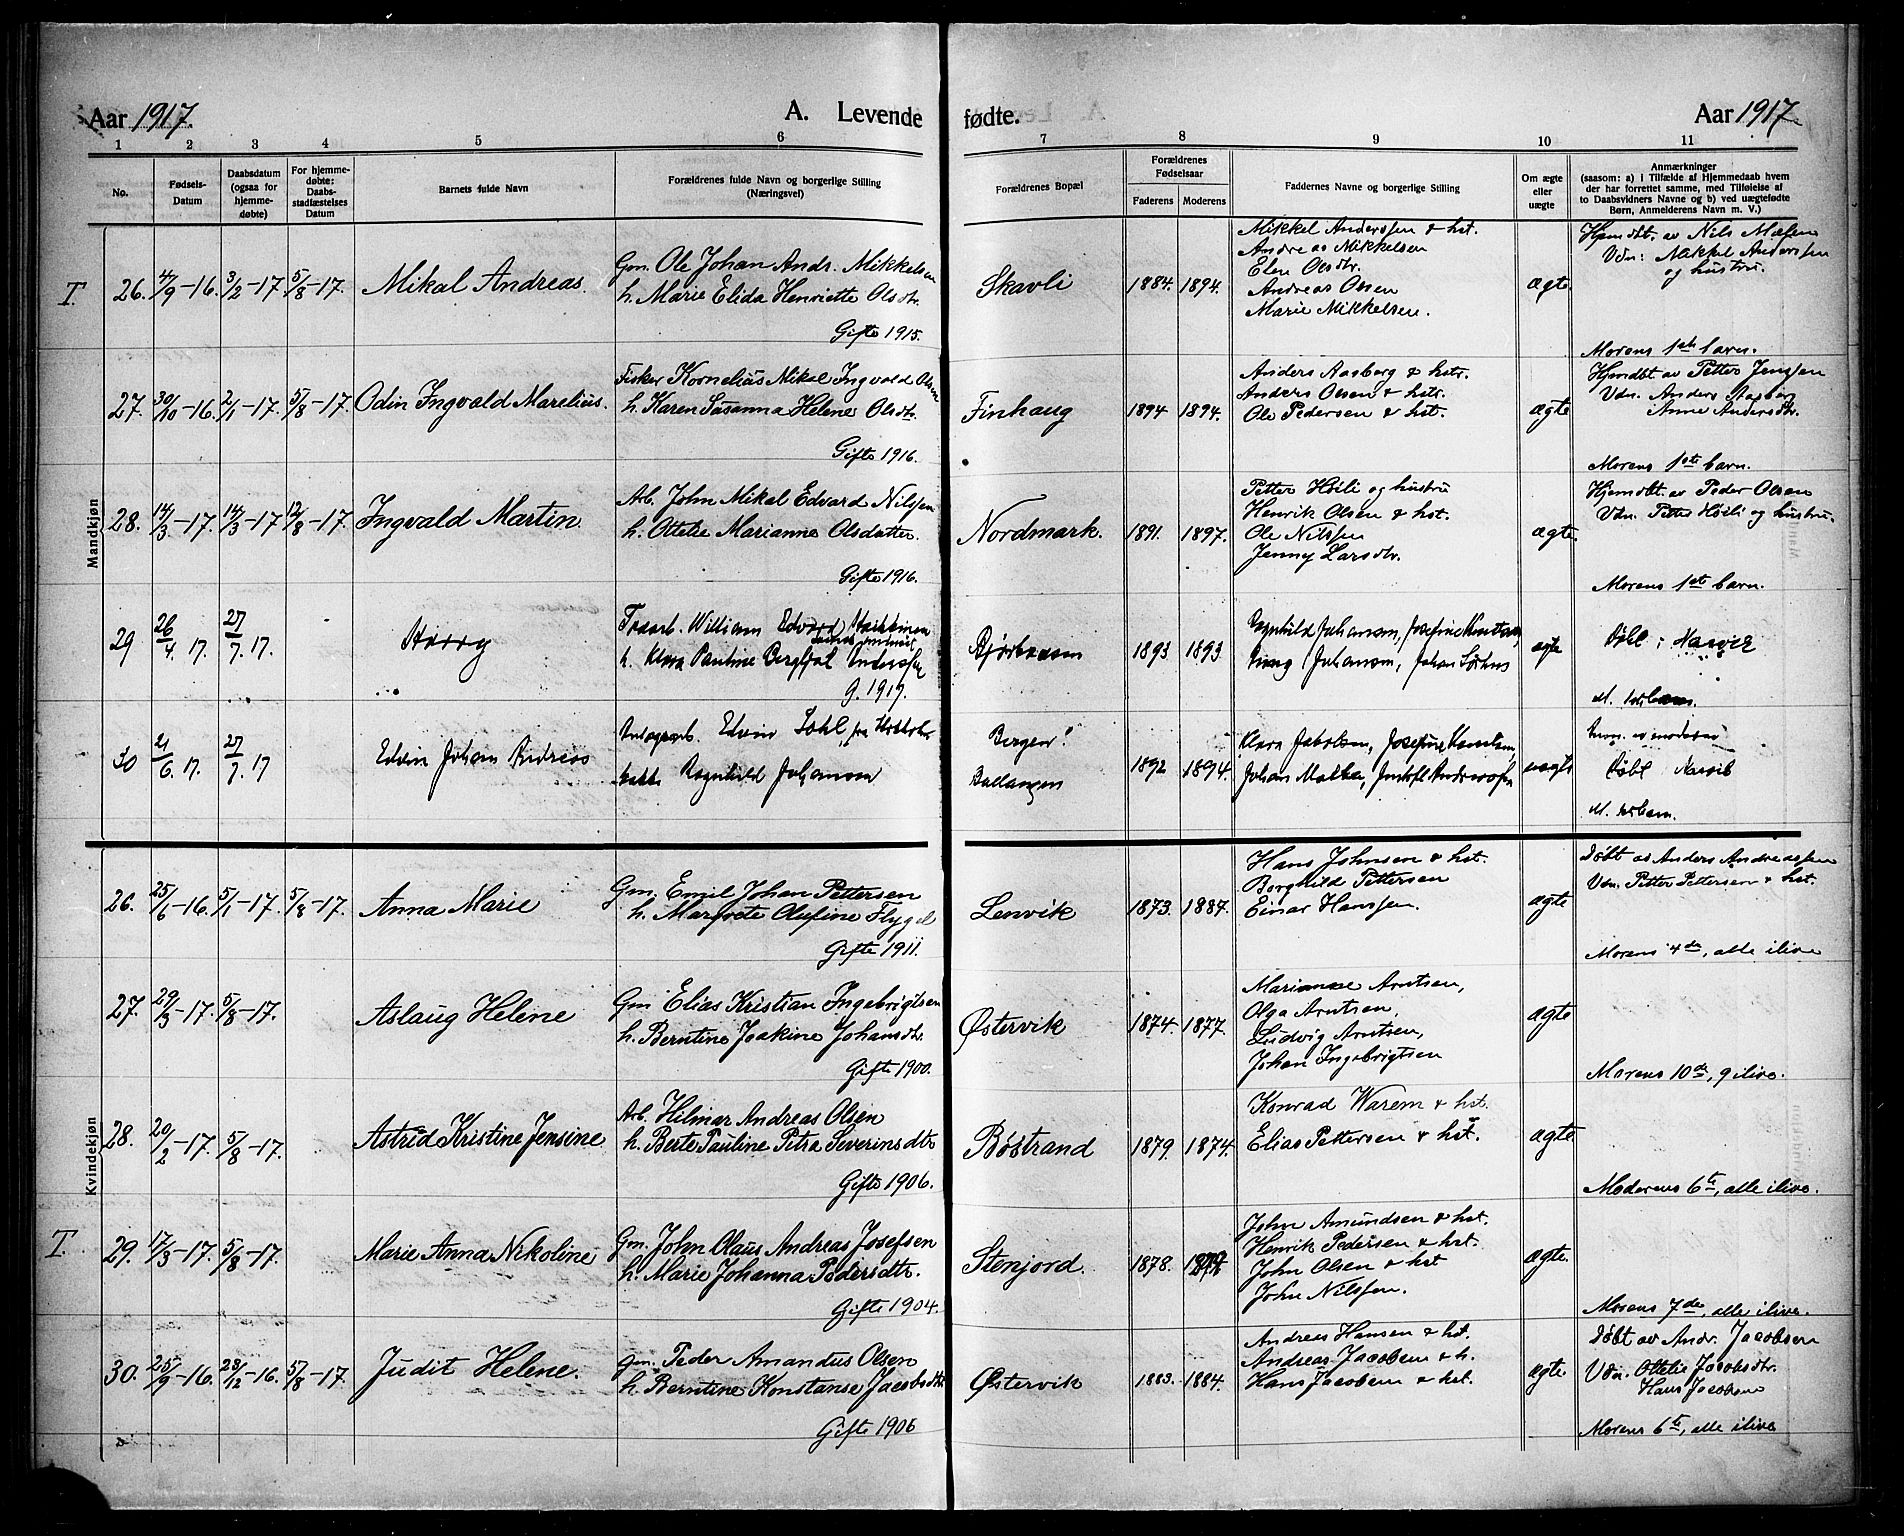 Aar 1917.
A. Levende
fødte.
Aar 1917
1 2 3 4 5 6 7 8 9 10 11
No.
Fødsels-Datum
Daabsdatum (ogsaa for hjemme-døbte)
For hjemme-døbte: Daabs-stadfæstelses Datum
Barnets fulde Navn
Forældrenes fulde Navn og borgerlige Stilling (Næringsvei)
Forældrenes Bopæl
Forældrenes Fødselsaar
Faderens Moderens
Faddernes Navne og borgerlige Stilling
Om ægte eller uægte
Anmærkninger
(saasom: a) i Tilfælde af Hjemmedaab hvem
der har forrettet samme, med Tilføielse af
to Daabsvidners Navne og b) ved uægtefødte
Børn, Anmelderens Navn m. V.)
Mandkjøn
T. 26. 4/9-16. 3/2-17 5/8-17. Mikal Andreas.
Gm. Ole Johan Andr. Mikkelsen
h. Marie Elida Henriette Olsdtr.
Gifte 1915.
Skavli 1884. 1894.
Mikkel Anderssen & hst.
Andreas Mikkelsen
Elen Olsdtr.
Andreas Olsen
Marie Mikkelsen.
ægte
Hjemdt. av Nils
Vdn: Mikkel Anderssen
og hustru.
Morens 1ste barn.
27. 30/10-16. 2/1-17. 5/8-17. Odin Ingvald Marelius.
Fisker Kornelius Mikal Ingvald Olsen
h. Karen Susanna Helene Olsdtr.
Gifte 1916.
Finhaug 1894 1894.
Anders Aasberg & hstr.
Anders Olsen & hstr.
Ole Pedersen & hst.
ægte
Hjemdbt av Petter Jenssen
Vdn. Anders
Anne Andersdtr.
Morens 1ste barn.
28. 14/3-17. 14/3-17 12/8-17. Ingvald Martin
Arb. John Mikal Edvard Nilssen
h. Ottelie Marianne Olsdatter.
Gifte 1916.
Nordmark. 1891. 1897.
Petter Høili og hustru
Henrik Olsen & hst.
Ole Nilssen
Jenny Larsdtr.
ægte.
Hjemdbt. av Peder Olsen
Vdn. Petter Høili og hustru.
Morens 1ste barn.
29 26/4. 17. 27/7. 17. Harry
William Edvard
h. Klara Pauline Bergljot
g. 1917.
1893 1893
Ragnhild Johansen, Josefine Knutsen,
Johansen, Johan
ægte
Døbt i Narvik
M. 1ste barn.
30 21/6. 17. 27/7. 17 Edvin Johan Andreas
Edvin Dahl, fra
Ragnhild Johansen
Bergen!
Ballangen
1892 1894.
Klara Jakobsen, Josefine Knutsen,
Johan
uægte
Døbt Narvik
M. 1ste barn.
Kvindekjøn
26. 25/6-16. 5/1-17. 5/8-17. Anna Marie
Gm. Emil Johan Pettersen
h. Margrete Olufine Flygel
Gifte 1911.
Lenvik 1873. 1887.
Hans Johnsen & hst.
Borghild Pettersen
Einar Hanssen.
ægte
Døbt av Anders Andreassen
Vdn. Petter Pettersen & hst.
Morens 4de, alle ilive
27. 29/3-17. 5/8-17. Aslaug Helene
Gm. Elias Kristian Ingebrigtsen
h. Berntine Joakine Johansdtr.
Gifte 1900.
Østervik 1874. 1877.
Marianne Arntsen,
Olga Arntsen,
Ludvig Arntsen,
Johan Ingebrigtsen
ægte
Morens 10de, 9 ilive.
28. 20/2-17. 5/8-17. Astrid Kristine Jensine
Arb. Hilmar Andreas Olsen
h. Berte Pauline Petra Severinsdtr
Gifte 1906.
Bøstrand 1879. 1874.
Konrad Warem & hst.
Elias Pettersen & hst.
ægte.
Moderens 6te, alle ilive.
T. 29. 17/3-17. 5/8-17. Marie Anna Nikoline
Gm. John Olaus Andreas Josefsen
h. Marie Johanna Pedersdtr.
Gifte 1904.
Stenjord. 1878.
John Amundsen & hst.
Henrik Pedersen & hst.
John Olsen & hst
John Nilssen.
ægte.
Morens 7de, alle ilive.
30. 25/9-16. 23/12-16. 5/8-17. Judit Helene.
Gm. Peder Amandus Olsen
h. Berntine Konstanse Jacobsdtr
Gifte 1906
Østervik 1883. 1884.
Andreas Hansen & hst.
Andreas Jacobsen & h.
Hans Jacobsen & hst.
ægte.
Døbt av Andr. Jacobsen
Vdn. Ottelie Jacobsdtr.
Hans Jacobsen
Morens 6te, alle ilive